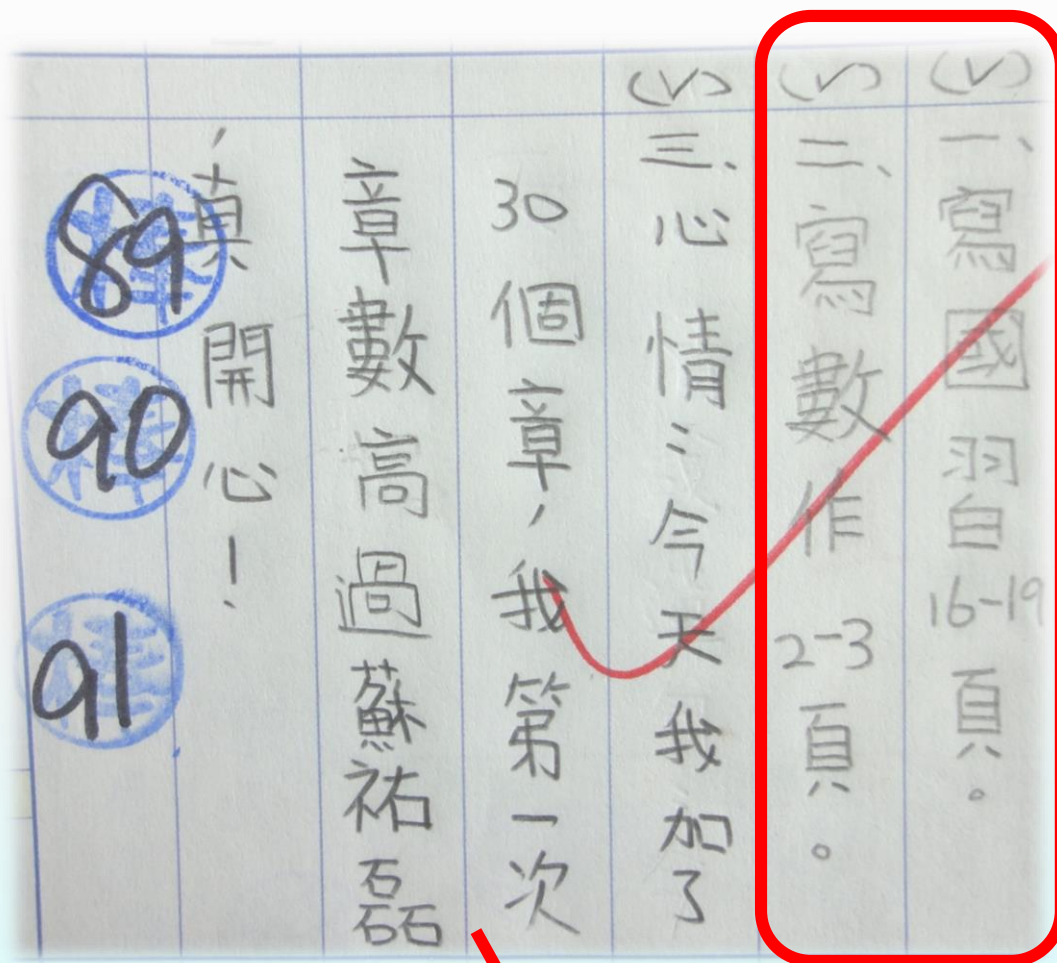 (✓)一、寫國習16-19頁。
(✓)二、寫數作 2-3頁。
(✓)三、心情:今天我加了
30個章,我第一次
章數高過蘇祐磊
,真開心!
89
90
91